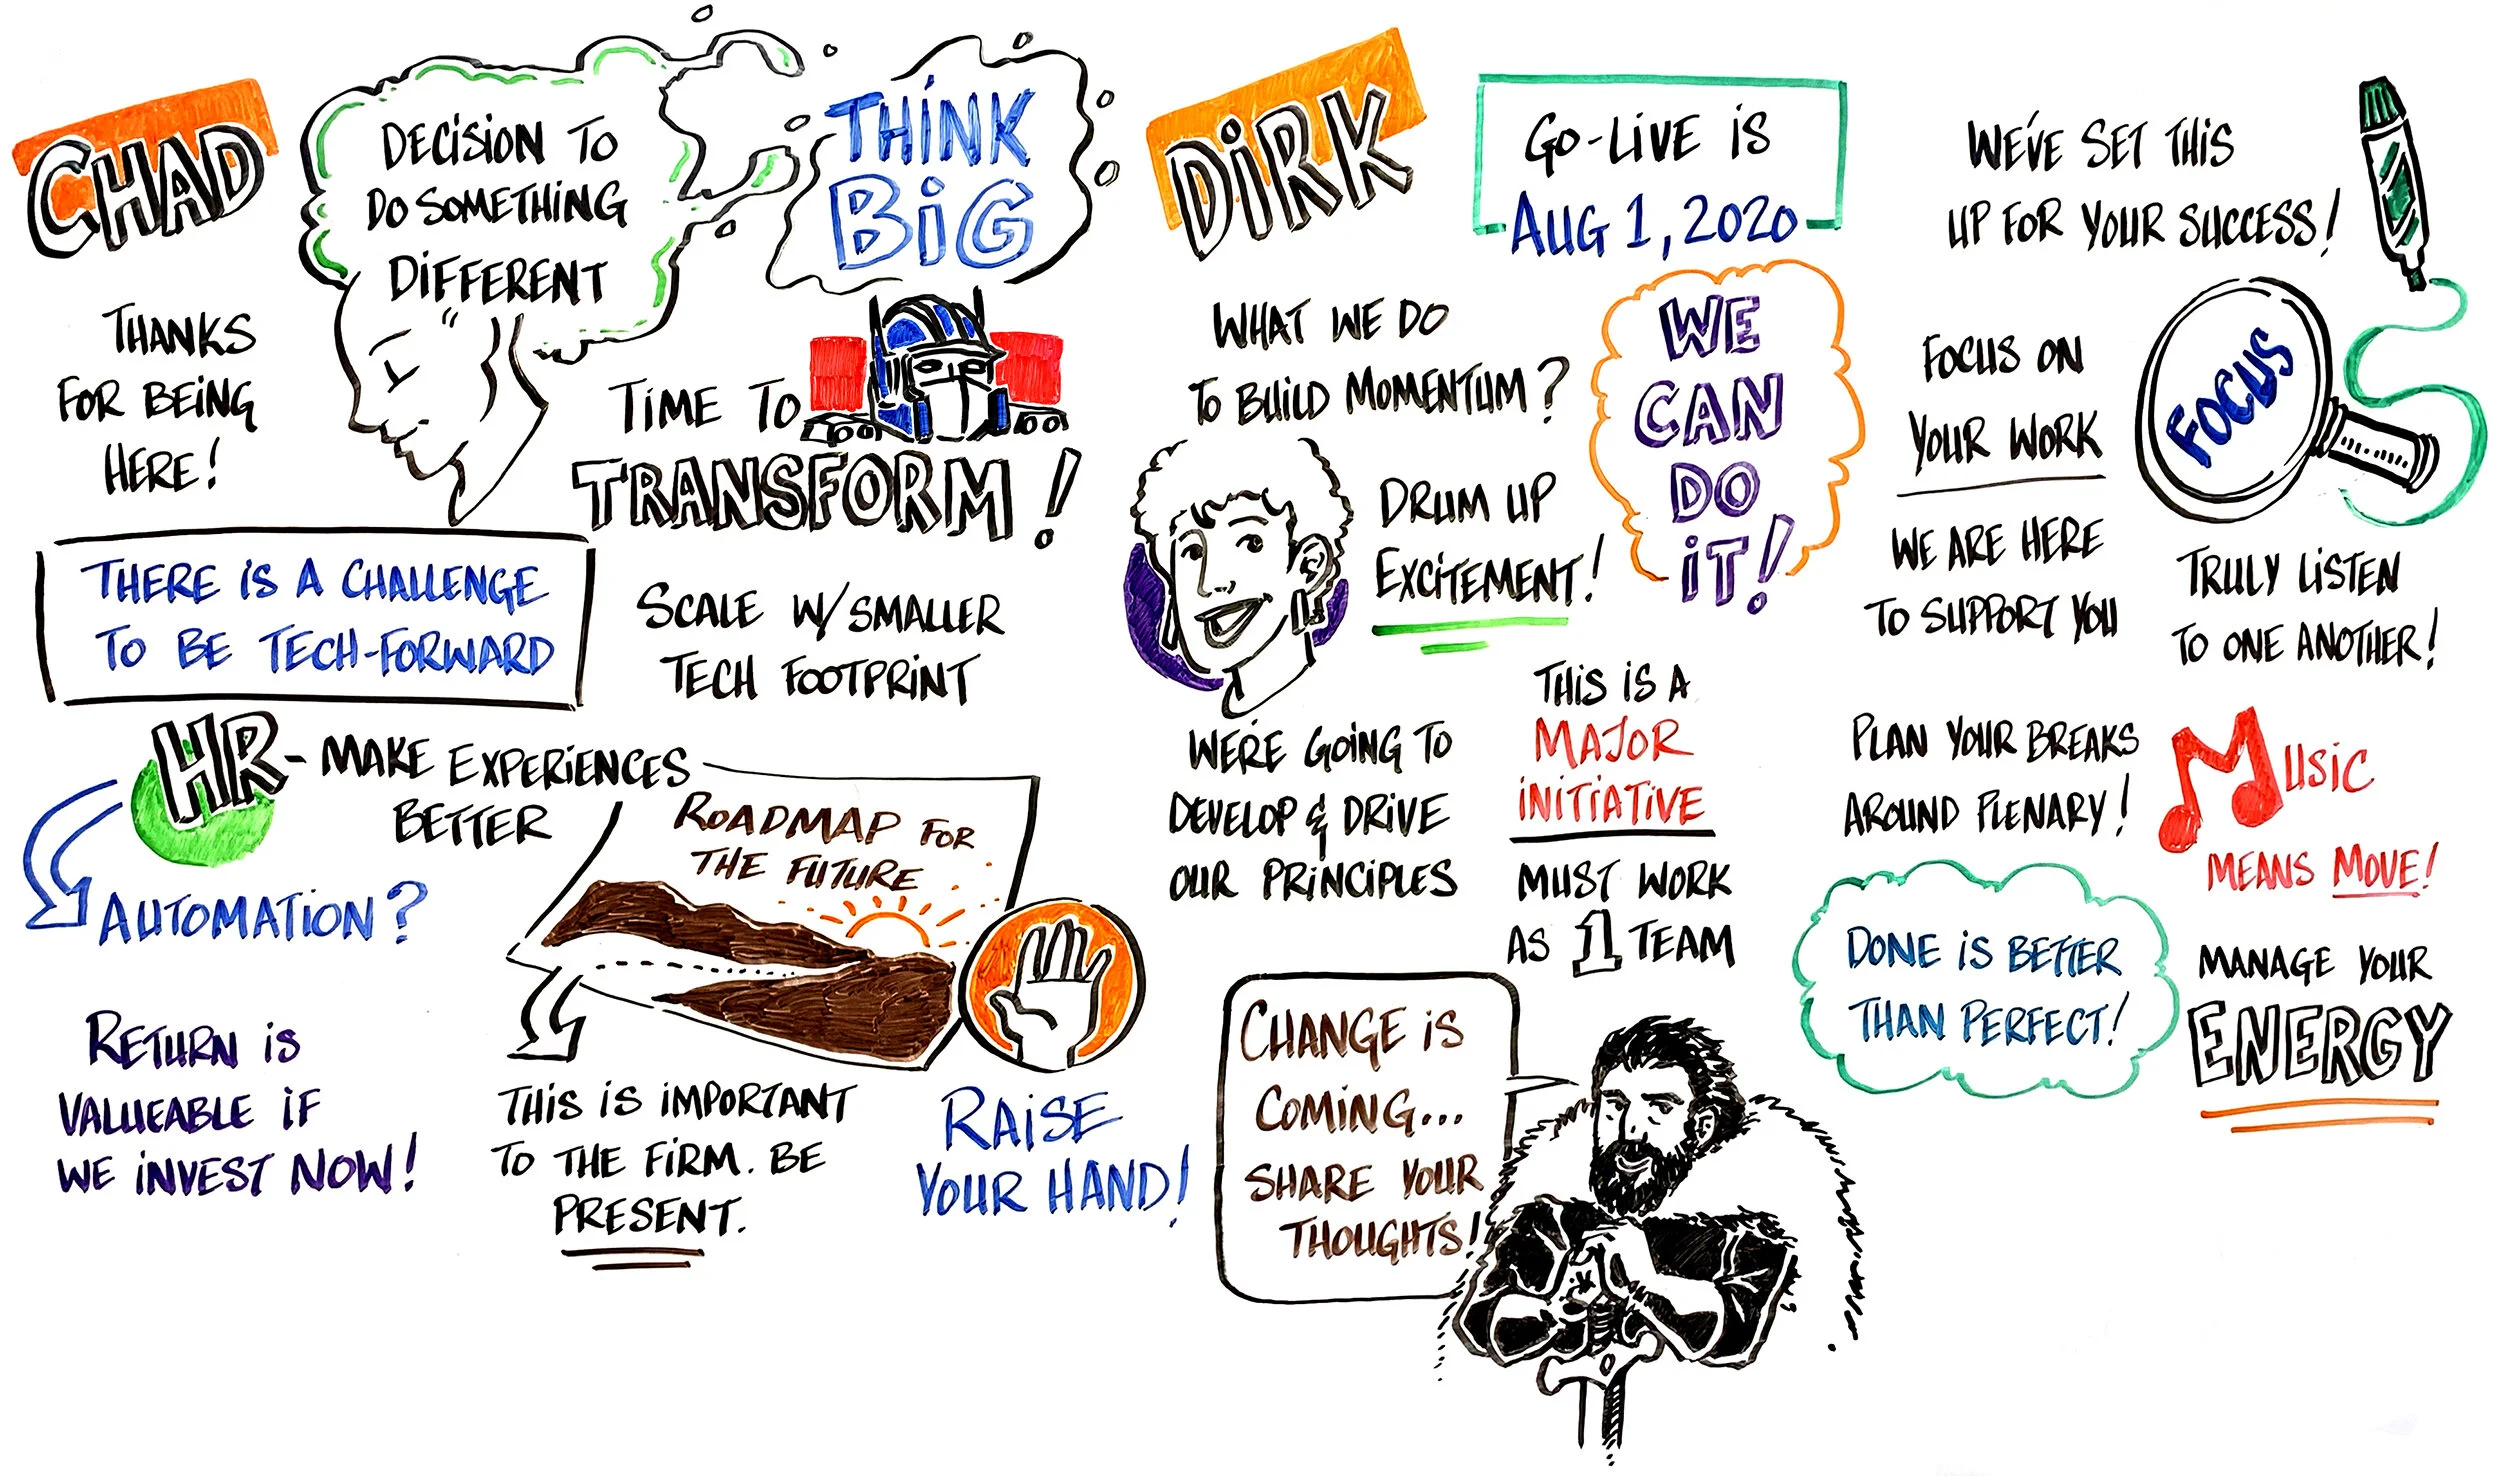 CHAD
THANKS
FOR BEING
HERE!
DECISION TO
DO SOMETHING
DIFFERENT
THINK
BIG
TIME TO
TRANSFORM!
THERE IS A CHALLENGE
TO BE TECH-FORWARD
SCALE W/ SMALLER
TECH FOOTPRINT
HR - MAKE EXPERIENCES
BETTER
AUTOMATION?
RETURN IS
VALUEABLE IF
WE INVEST NOW!
ROADMAP FOR
THE FUTURE
THIS IS IMPORTANT
TO THE FIRM. BE
PRESENT.
RAISE
YOUR HAND!
DIRK
GO-LIVE IS
AUG 1, 2020
WHAT WE DO
TO BUILD MOMENTUM?
DRUM UP
EXCITEMENT!
WE
CAN
DO
IT!
WE'RE GOING TO
DEVELOP & DRIVE
OUR PRINCIPLES
THIS IS A
MAJOR
INITIATIVE
MUST WORK
AS 1 TEAM
CHANGE IS
COMING...
SHARE YOUR
THOUGHTS!
WE'VE SET THIS
UP FOR YOUR SUCCESS!
FOCUS ON
YOUR WORK
FOCUS
WE ARE HERE
TO SUPPORT YOU
TRULY LISTEN
TO ONE ANOTHER!
PLAN YOUR BREAKS
AROUND PLENARY!
MUSIC
MEANS MOVE!
DONE IS BETTER
THAN PERFECT!
MANAGE YOUR
ENERGY